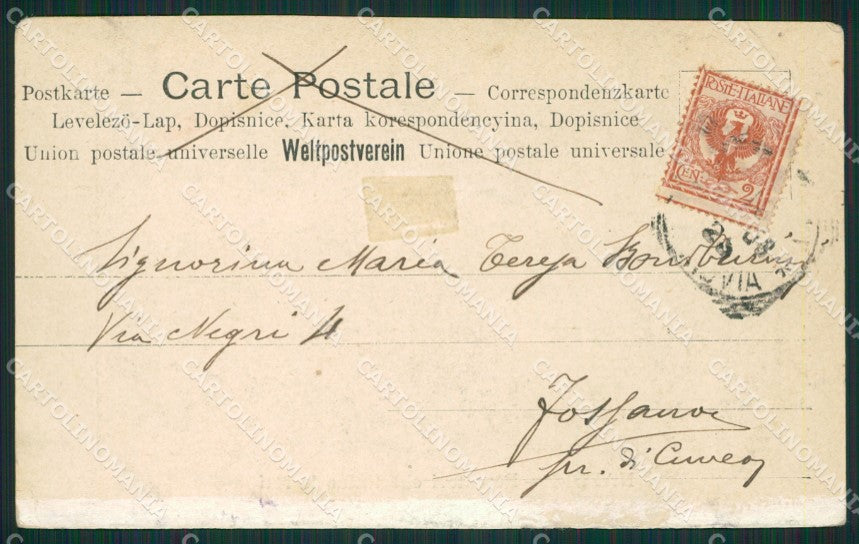 Postkarte — Carte Postale — Correspondenzkarte
Levelezö-Lap, Dopisnice, Karta korespondencyina, Dopisnice
Union postale universelle Weltpostverein Unione postale universale
POSTE·ITALIANE
CEN. 2
08
VIA
Signorina Maria Teresa
Via Negri 4
Fossano
pr. di Cuneo
CARTOLINOMANIA